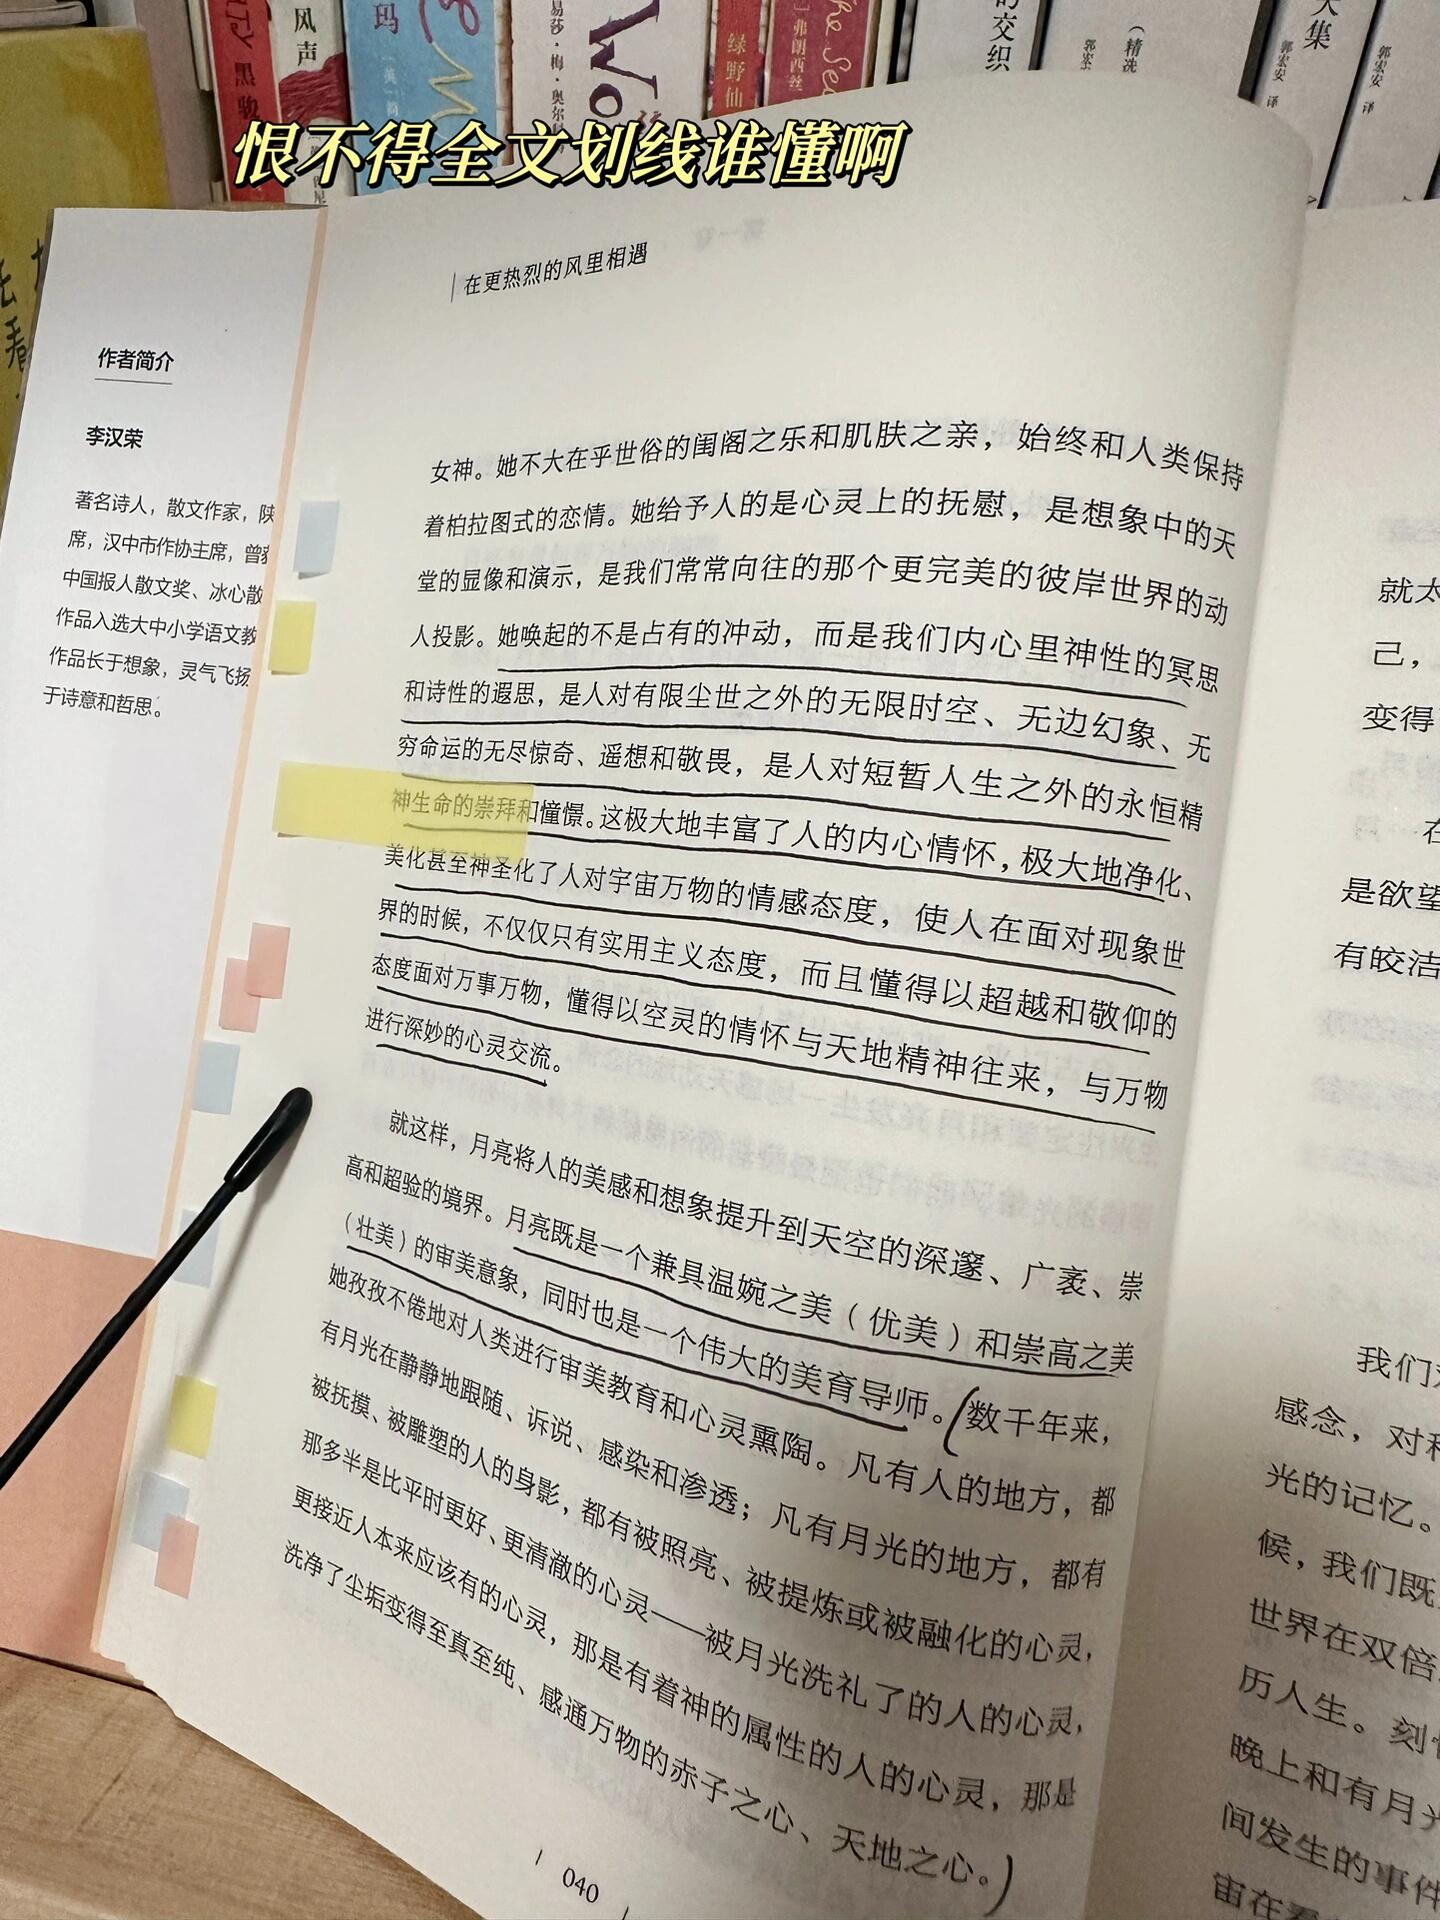 风声
玛
绿野仙
的交织
（精选
郭宏安 译
大集
郭宏安 译
恨不得全文划线谁懂啊
在更热烈的风里相遇
作者简介
李汉荣
著名诗人，散文作家，陕
席，汉中市作协主席，曾获
中国报人散文奖、冰心散
作品入选大中小学语文教
作品长于想象，灵气飞扬
于诗意和哲思。
女神。她不大在乎世俗的闺阁之乐和肌肤之亲，始终和人类保持
着柏拉图式的恋情。她给予人的是心灵上的抚慰，是想象中的天
堂的显像和演示，是我们常常向往的那个更完美的彼岸世界的动
人投影。她唤起的不是占有的冲动，而是我们内心里神性的冥思
和诗性的遐思，是人对有限尘世之外的无限时空、无边幻象、无
穷命运的无尽惊奇、遥想和敬畏，是人对短暂人生之外的永恒精
神生命的崇拜和憧憬。这极大地丰富了人的内心情怀，极大地净化、
美化甚至神圣化了人对宇宙万物的情感态度，使人在面对现象世
界的时候，不仅仅只有实用主义态度，而且懂得以超越和敬仰的
态度面对万事万物，懂得以空灵的情怀与天地精神往来，与万物
进行深妙的心灵交流。
就这样，月亮将人的美感和想象提升到天空的深邃、广袤、崇
高和超验的境界。月亮既是一个兼具温婉之美（优美）和崇高之美
（壮美）的审美意象，同时也是一个伟大的美育导师。数千年来，
她孜孜不倦地对人类进行审美教育和心灵熏陶。凡有人的地方，都
有月光在静静地跟随、诉说、感染和渗透；凡有月光的地方，都有
被抚摸、被雕塑的人的身影，都有被照亮、被提炼或被融化的心灵，
那多半是比平时更好、更清澈的心灵——被月光洗礼了的人的心灵，
更接近人本来应该有的心灵，那是有着神的属性的人的心灵，那是
洗净了尘垢变得至真至纯、感通万物的赤子之心、天地之心。
040
就太
己，
变得
在
是欲望
有皎洁
我们
感念，对
光的记忆。
候，我们既
世界在双倍
历人生。刻
晚上和有月光
间发生的事件
宙在看